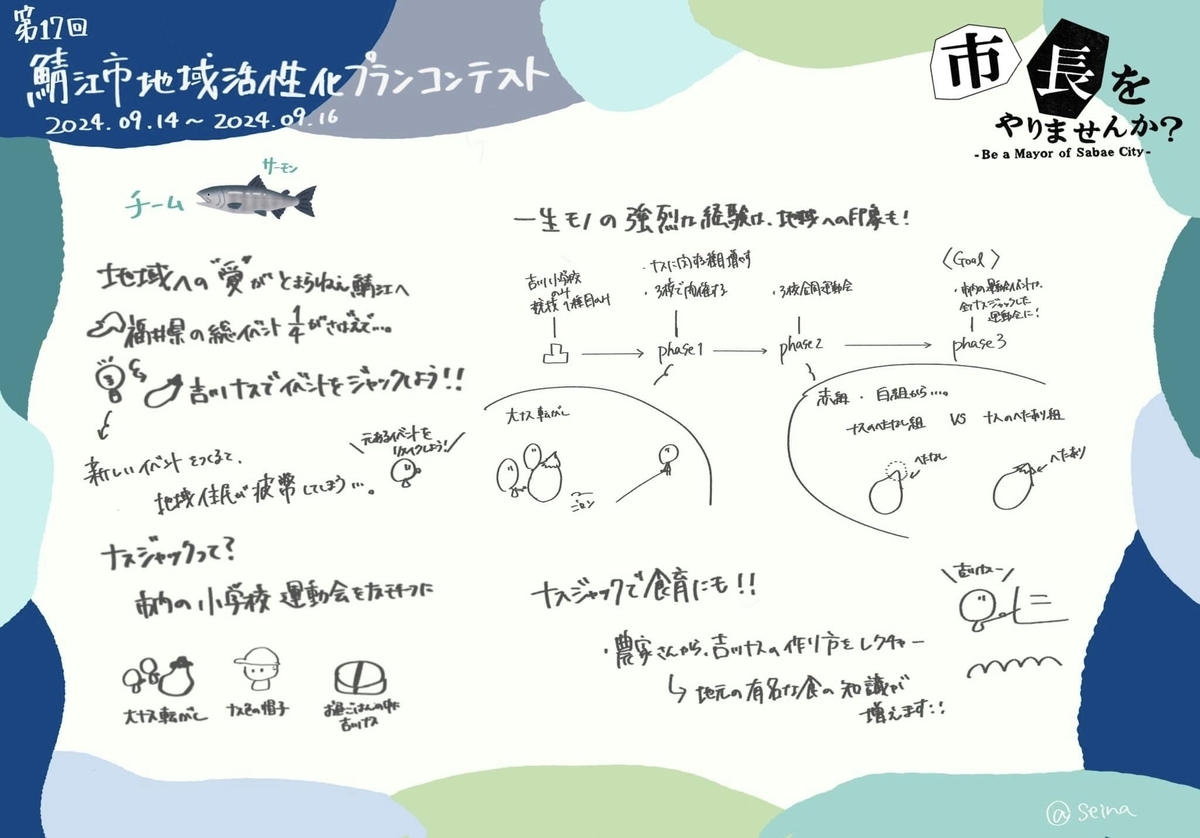 第17回
鯖江市地域活性化プランコンテスト
2024.09.14～2024.09.16
市長を
やりませんか？
-Be a Mayor of Sabae City-
チーム
サーモン
地域への"愛"がとまらねぇ鯖江へ
福井県の総イベント1/4がさばえで…。
吉川ナスでイベントをジャックしよう!!
新しいイベントをつくるて、
地域住民が疲弊してしまう…。
元あるイベントを
リメイクしよう!
ナスジャックって?
市内の小学校運動会をナスモチーフに
大ナス転がし
ナス色の帽子
お昼ごはんの中に
吉川ナス
一生モノの強烈な経験は、地域への印象も!
吉川小学校
のみ
競技1種目のみ
・ナスに関する種目増やす
・3校で開催する
・3校合同運動会
〈Goal〉
・市内の運動会イベントで、
全てナスジャックした
運動会に!
phase1
phase2
phase3
大ナス転がし
ゴロン
赤組・白組から…。
ナスのへたなし組 VS ナスのへたあり組
へたなし
へたあり
ナスジャックで食育にも!!
・農家さんから、吉川ナスの作り方をレクチャー
↳地元の有名な食の知識が
増えます!!
吉川ナスー
@seina